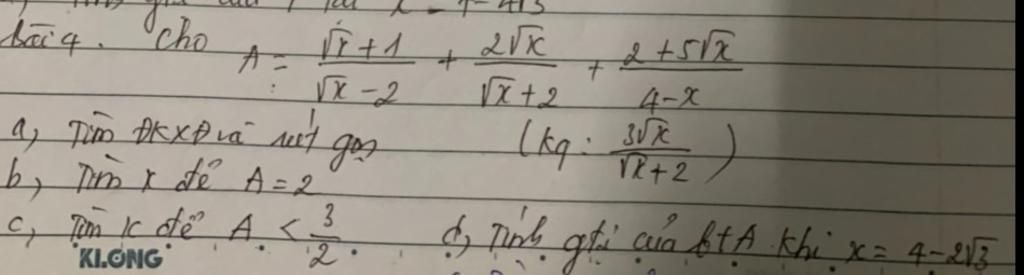 x = 4 - 4√3
bài 4. Cho A = (√x + 1)/(√x - 2) + (2√x)/(√x + 2) + (2 + 5√x)/(4 - x)
a, Tìm ĐKXĐ và rút gọn (kq: (3√x)/(√x + 2))
b, Tìm x để A = 2
c, Tìm x để A < 3/2. d, Tính gtrị của bt A khi x = 4 - 2√3
KLONG